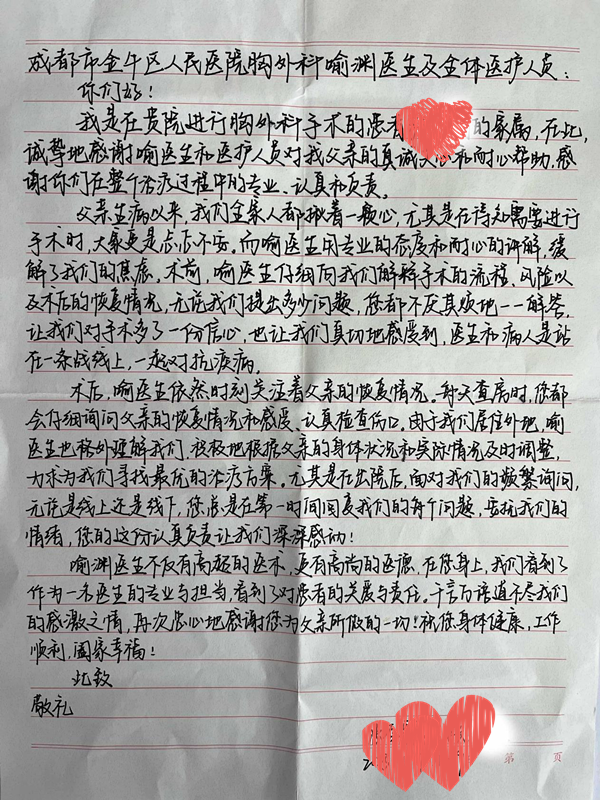 成都市金牛区人民医院胸外科喻渊医生及全体医护人员：
你们好！
我是在贵院进行胸外科手术的患者的家属，在此，
诚挚地感谢喻医生和医护人员对我父亲的真诚关心和耐心帮助，感
谢你们在整个治疗过程中的专业、认真和负责。
父亲生病以来，我们全家人都揪着一颗心，尤其是在得知需要进行
手术时，大家更是忐忑不安。而喻医生用专业的态度和耐心的讲解，缓
解了我们的焦虑。术前，喻医生仔细向我们解释手术的流程、风险以
及术后的恢复情况，无论我们提出多少问题，您都不厌其烦地一一解答，
让我们对手术多了一份信心，也让我们真切地感受到，医生和病人是站
在一条战线上，一起对抗疾病。
术后，喻医生依然时刻关注着父亲的恢复情况。每天查房时，您都
会仔细询问父亲的恢复情况和感受、认真检查伤口。由于我们居住外地，喻
医生也格外理解我们，积极地根据父亲的身体状况和实际情况及时调整，
力求为我们寻找最优的治疗方案。尤其是在出院后，面对我们的频繁询问，
无论是线上还是线下，您总是在第一时间回复我们的每个问题，安抚我们的
情绪，您的这份认真负责让我们深深感动！
喻渊医生不仅有高超的医术，更有高尚的医德，在您身上，我们看到了
作为一名医生的专业与担当，看到了对患者的关爱与责任。千言万语道不尽我们
的感激之情，再次衷心地感谢您为父亲所做的一切！祝您身体健康，工作
顺利，阖家幸福！
此致
敬礼
第 页